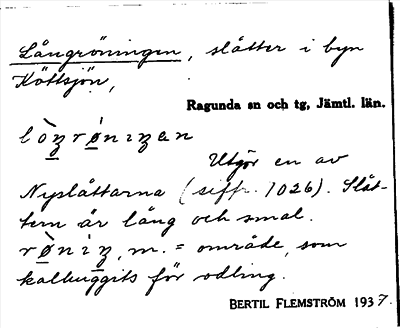 Långröningen, slåtter i byn
Köttsjön,
Ragunda sn och tg, Jämtl. län.
lòŋrø̀nıŋan
Utgör en av
Nyslåttarna (siffr. 1026). Slåt-
tern är lång och smal.
rø̀nìŋ, m. = område, som
kalhuggits för odling.
BERTIL FLEMSTRÖM 1937.